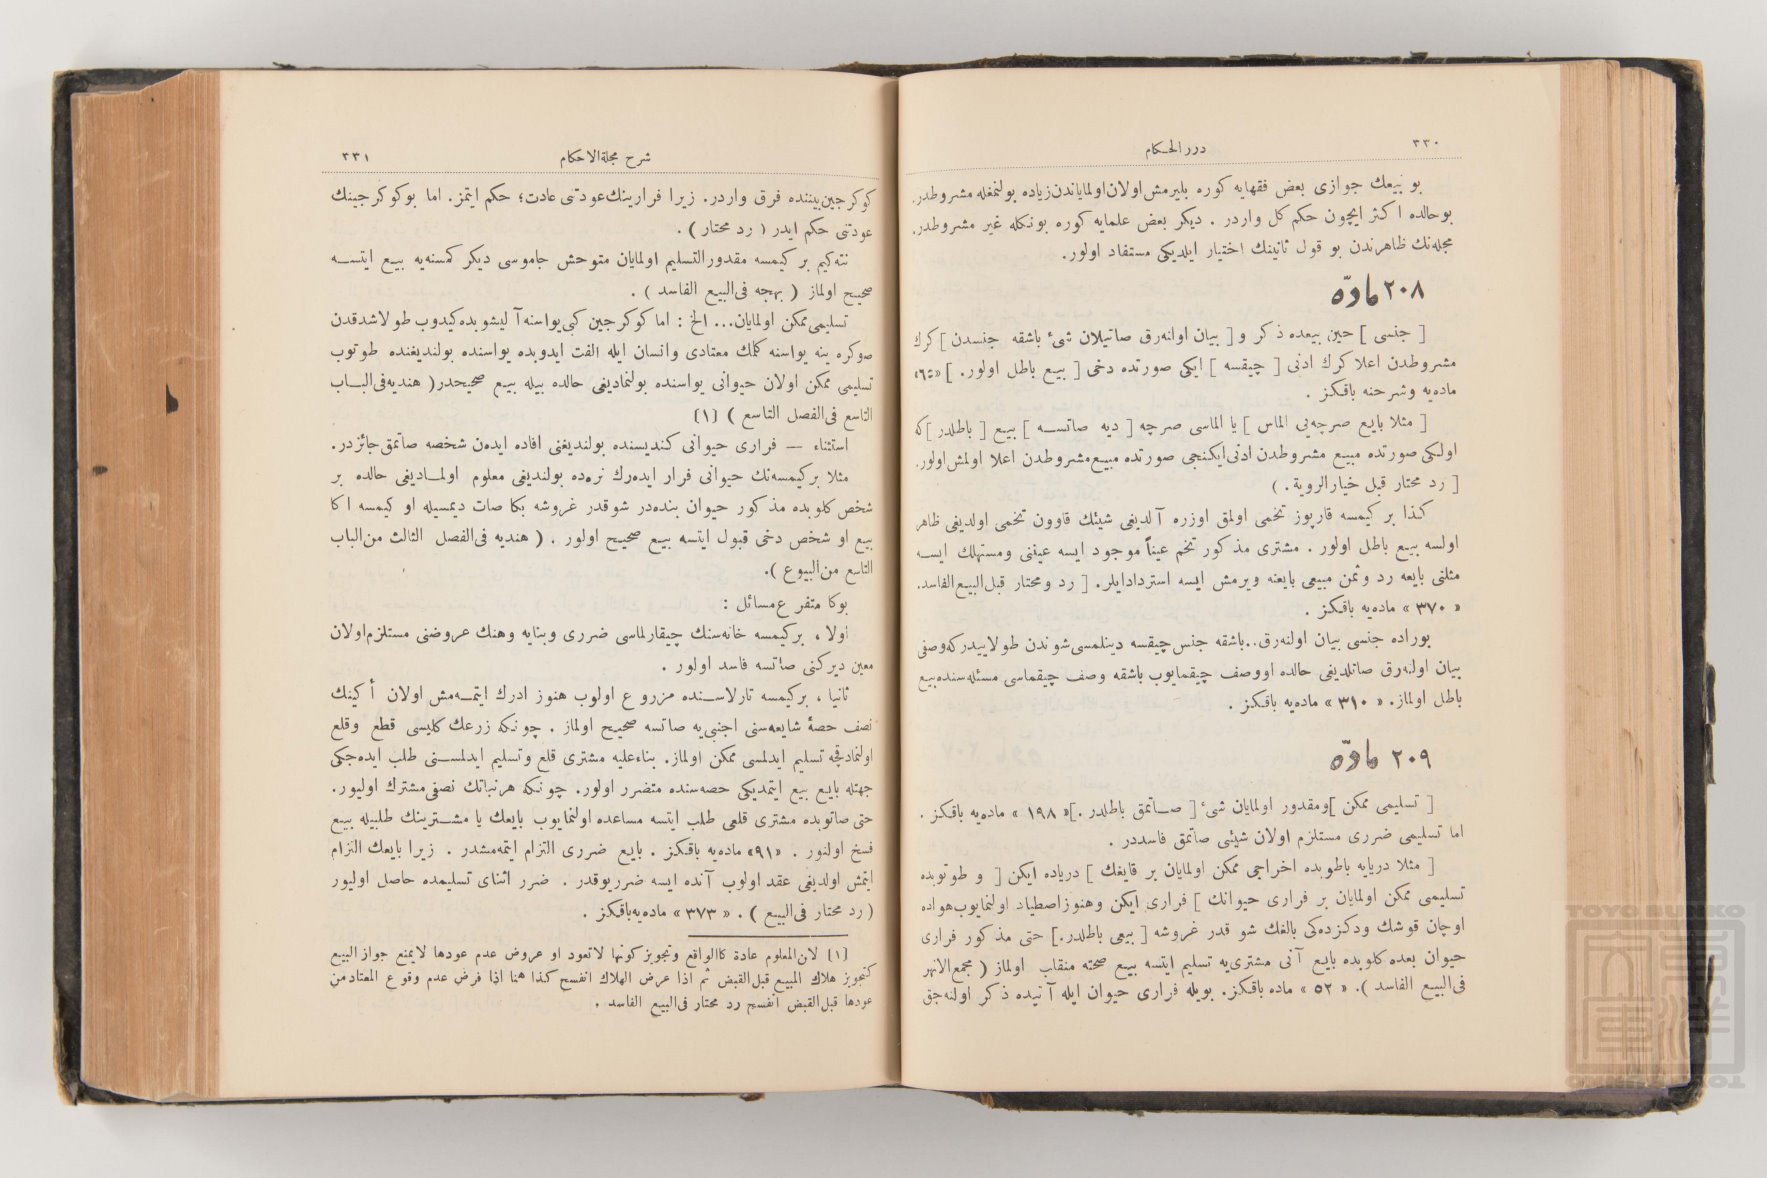 ٣٣٠
دررالحكام
بو بيعك جوازی بعض فقهایه كوره بلیرمش اولان اولمایاندن زیاده بولنمغله مشروطدر.
بوحالده اكثر ایچون حكم كل واردر . دیكر بعض علمایه كوره بونكله غیر مشروطدر.
مجله‌نك ظاهرندن بو قول ثانینك اختیار ایلدیكی مستفاد اولور.
٢٠٨ مادّه
[ جنسی ] حین بیعده ذكر و [ بیان اولنه‌رق صاتیلان شیٔ باشقه جنسدن ] كرك
مشروطدن اعلا كرك ادنی [ چیقسه ] ایكی صورتده دخی [ بیع باطل اولور. ]
ماده‌یه وشرحنه باقكز .
[ مثلا بایع صرچه‌یی الماس ] یا الماسی صرچه [ دیه صاتسه ] بیع [ باطلدر ] كه
اولكی صورتده مبیع مشروطدن ادنی ایكنجی صورتده مبیع مشروطدن اعلا اولمش اولور.
[ رد محتار قبل خیارالرویة. )
كذا بر كیمسه قارپوز تخمی اولمق اوزره آلدیغی شیئك قاوون تخمی اولدیغی ظاهر
اولسه بیع باطل اولور . مشتری مذكور تخم عیناً موجود ایسه عیننی ومستهلك ایسه
مثلنی بایعه رد وثمن مبیعی بایعنه ویرمش ایسه استردادایلر. [ رد ومحتار قبل البیع الفاسد.
« ٣٧٠ » ماده‌یه باقكز .
بوراده جنسی بیان اولنه‌رق..باشقه جنس چیقسه دینلمسی شوندن طولاییدركه وصفی
بیان اولنه‌رق صاتلدیغی حالده اووصف چیقمایوب باشقه وصف چیقماسی مسئله‌سنده بیع
باطل اولماز. « ٣١٠ » ماده‌یه باقكز .
٢٠٩ مادّه
[ تسلیمی ممكن ] ومقدور اولمایان شیٔ [ صاتمق باطلدر .] « ١٩٨ » ماده‌یه باقكز .
اما تسلیمی ضرری مستلزم اولان شیئی صاتمق فاسددر .
[ مثلا دریایه باطوبده اخراجی ممكن اولمایان بر قایغك ] دریاده ایكن [ و طوتوبده
تسلیمی ممكن اولمایان بر فراری حیوانك ] فراری ایكن وهنوز اصطیاد اولنمایوب هواده
اوچان قوشك ودكزده‌كی بالغك شو قدر غروشه [ بیعی باطلدر.] حتی مذكور فراری
حیوان بعده كلوبده بایع آنی مشتری‌یه تسلیم ایتسه بیع صحته منقلب اولماز ( مجمع‌الانهر
فی‌البیع الفاسد ). « ٥٢ » ماده باقكز. بویله فراری حیوان ایله آتیده ذكر اولنه‌جق
شرح مجلةالاحكام
٣٣١
كوكرجین بیننده فرق واردر. زیرا فرارینك عودتنی عادت؛ حكم ایتمز. اما بوكوكرجینك
عودتنی حكم ایدر ( رد محتار ) .
نته‌كیم بر كیمسه مقدورالتسلیم اولمایان متوحش جاموسی دیكر كمسنه‌یه بیع ایتسه
صحیح اولماز ( بهجه فی‌البیع الفاسد ) .
تسلیمی ممكن اولمایان... الخ : اما كوكرجین كبی یواسنه آلیشوبده كیدوب طولاشدقدن
صوكره ینه یواسنه كلمك معتادی وانسان ایله الفت ایدوبده یواسنده بولندیغنده طوتوب
تسلیمی ممكن اولان حیوانی یواسنده بولنمادیغی حالده بیله بیع صحیحدر( هندیه فی‌البـاب
التاسع فی‌الفصل التاسع ) [١]
استثناء — فراری حیوانی كندیسنده بولندیغنی افاده ایدەن شخصه صاتمق جائزدر.
مثلا بركیمسه‌نك حیوانی فرار ایده‌رك نره‌ده بولندیغی معلوم اولمـادیغی حالده بر
شخص كلوبده مذكور حیوان بنده‌در شوقدر غروشه بكا صات دیمسیله او كیمسه اكا
بیع او شخص دخی قبول ایتسه بیع صحیح اولور . ( هندیه فی‌الفصل الثالث من‌الباب
التاسع من‌البیوع ).
بوكا متفرع مسائل :
اولا ، بركیمسه خانه‌سنك چیقارلماسی ضرری وبنایه وهنك عروضنی مستلزم اولان
معین دیركنی صاتسه فاسد اولور .
ثانیا ، بركیمسه تارلاسـنده مزروع اولوب هنوز ادرك ایتمـه‌مش اولان أكینك
نصف حصهٔ شایعه‌سنی اجنبی‌یه صاتسه صحیح اولماز . چونكه زرعك كلیسی قطع وقلع
اولنمادقجه تسلیم ایدلمسی ممكن اولماز. بناءعلیه مشتری قلع وتسلیم ایدلمسـنی طلب ایده‌جكی
جهتله بایع بیع ایتمدیكی حصه‌سنده متضرر اولور. چونكه هرنباتك نصفی مشترك اولیور.
حتی صاتوبده مشتری قلعی طلب ایتسه مساعده اولنمایوب بایعك یا مشـترینك طلبیله بیع
فسخ اولنور . «٩١» ماده‌یه باقكز . بایع ضرری التزام ایتمه‌مشدر . زیرا بایعك التزام
ایتمش اولدیغی عقد اولوب آنده ایسه ضرر یوقدر . ضرر اثنای تسلیمده حاصل اولیور
( رد محتار فی‌البیع ) . « ٣٧٣ » ماده‌یه باقكز .
[١] لان‌المعلوم عادة كالواقع وتجویز كونها لاتعود او عروض عدم عودها لایمنع جواز البیع
كتجویز هلاك المبیع قبل‌القبض ثم اذا عرض الهلاك انفسخ كذا هنا اذا فرض عدم وقوع المعتاد من
عودها قبل‌القبض انفسخ رد محتار فی‌البیع الفاسد .
TOYO BUNKO
東洋
文庫